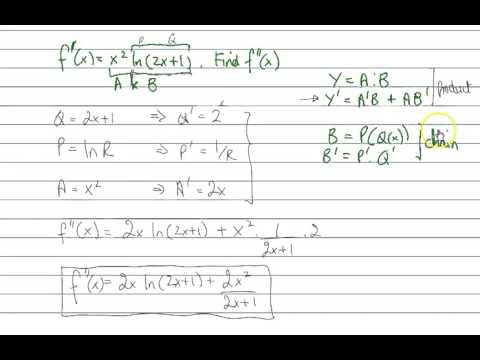 P Q
f'(x) = x² ln(2x+1). Find f''(x)
A x B
Y = A.B
→ Y' = A'B + AB'
Product
Q = 2x+1 ⇒ Q' = 2
P = ln R ⇒ P' = 1/R
B = P(Q(x))
B' = P'. Q'
chain
A = x² ⇒ A' = 2x
f''(x) = 2x ln(2x+1) + x². 1/(2x+1) .2
f''(x) = 2x ln(2x+1) + 2x²/(2x+1)